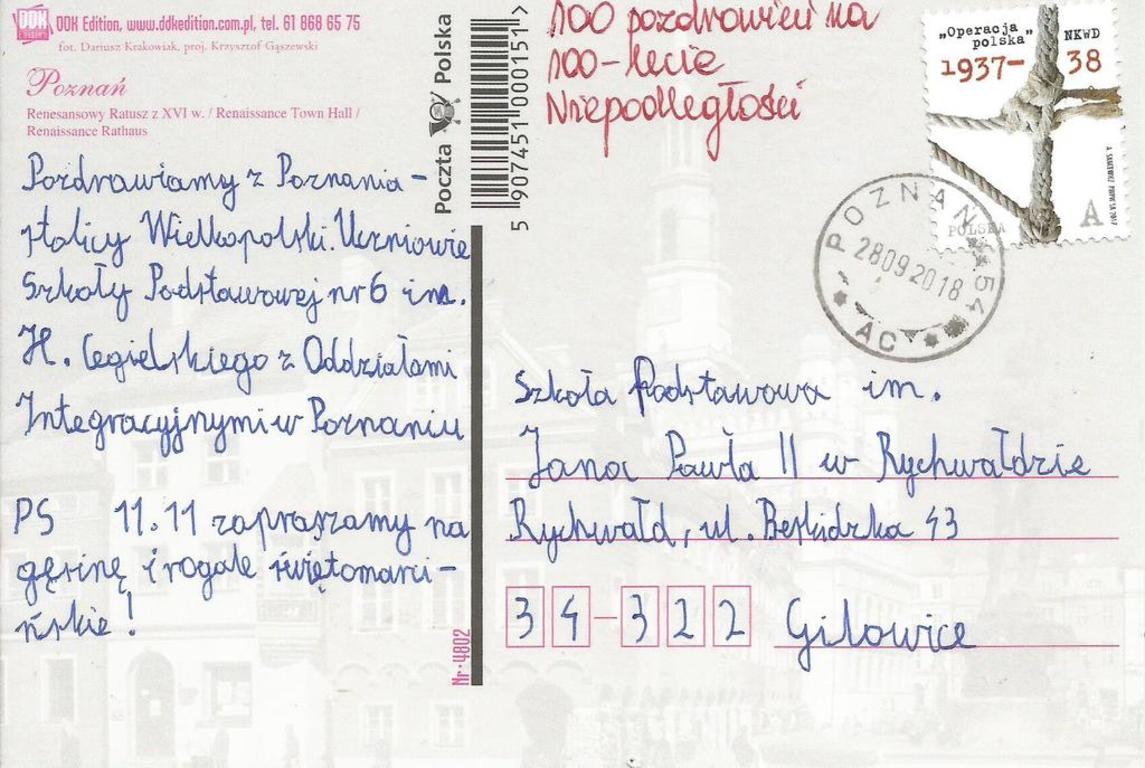 DDK Edition, www.ddkedition.com.pl, tel. 61 868 65 75
fot. Dariusz Krakowiak, proj. Krzysztof Gąszewski
Poznań
Renesansowy Ratusz z XVI w. / Renaissance Town Hall /
Renaissance Rathaus
Pozdrawiamy z Poznania -
stolicy Wielkopolski. Uczniowie
Szkoły Podstawowej nr 6 im.
H. Cegielskiego z Oddziałami
Integracyjnymi w Poznaniu
PS 11.11 zapraszamy na
gęsinę i rogale świętomarci-
ńskie!
Poczta Polska
5 907451 000151 >
Nr 4802
100 pozdrowień na
100-lecie
Niepodległości
„Operacja
polska" NKWD
1937-38
POLSKA A
POZNAŃ 54
28 09 2018
AC
Szkoła Podstawowa im.
Jana Pawła II w Rychwałdzie
Rychwałd, ul. Beskidzka 43
34-322 Gilowice